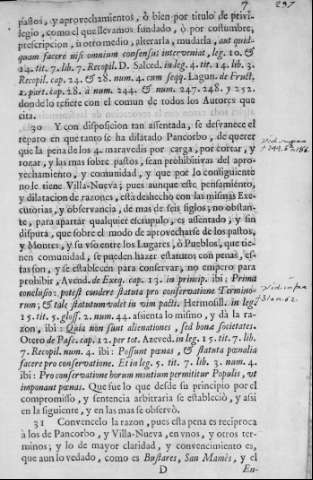 7
237
pastos, y aprovechamientos, ò bien por titulo de privilegio, como el que llevamos fundado, ò por costumbre,
prescripcion, ù otro medio, alterarla, mudarla, aut quidquam facere nisi omnium consensus interveniat, leg. 10. &
24. tit. 7. lib. 7. Recopil. D. Salced. in leg. 4. tit. 14. lib. 3.
Recopil. cap. 24. & 28. num. 4. cum seqq. Lagun. de Fruct.
2. part. cap. 28. à num. 244. & num. 247. 248. y 252.
donde lo refiere con el comun de todos los Autores que
cita.
30 Y con disposicion tan assentada, se desvanece el
reparo en que tanto se ha dilatado Pancorbo, de querer
que la pena de los 4. maravedis por carga, por cortar, y
rozar, y las mas sobre pastos, sean prohibitivas del aprovechamiento, y comunidad, y que por lo consiguiente
no le tiene Villa-Nueva; pues aunque este pensamiento,
y dilatacion de razones, està deshecho con las mismas Executorias, y observancia, de mas de seis siglos; no obstante, para apartar qualquier escrupulo, es assentado, y sin
disputa, que sobre el modo de aprovecharse de los pastos,
y Montes, y su vso entre los Lugares, ò Pueblos, que tienen comunidad, se pueden hazer estatutos con penas, estas son, y se establecen para conservar, no empero para
prohibir, Avend. de Exeq. cap. 13. in princip. ibi: Prima
conclusio: potest cundere statuta pro conservatione Terminorum; & tale statutum volet in vim pacti. Hermosill. in leg.
15. tit. 5. gloss. 2. num. 44. asienta lo mismo, y dà la razon, ibi: Quia non sunt alienationes, sed bona societates.
Otero de Pasc. cap. 12. per tot. Azeved. in leg. 15. tit. 7. lib.
7. Recopil. num. 4. ibi: Possunt pœnas, & statuta pœnalia
facere pro conservatione. Et in leg. 5. tit. 7. lib. 3. num. 4.
ibi: Pro conservatione horum montium permititur Populis, vt
imponant pœnas. Que fue lo que desde su principio por el
compromisso, y sentencia arbitraria se estableciò, y assi
en la siguiente, y en las mas se observò.
31 Convencelo la razon, pues esta pena es reciproca
à los de Pancorbo, y Villa-Nueva, en vnos, y otros terminos; y lo de mayor claridad, y convencimiento es,
que aun lo vedado, como es Bustares, San Mamès, y el
D
En-